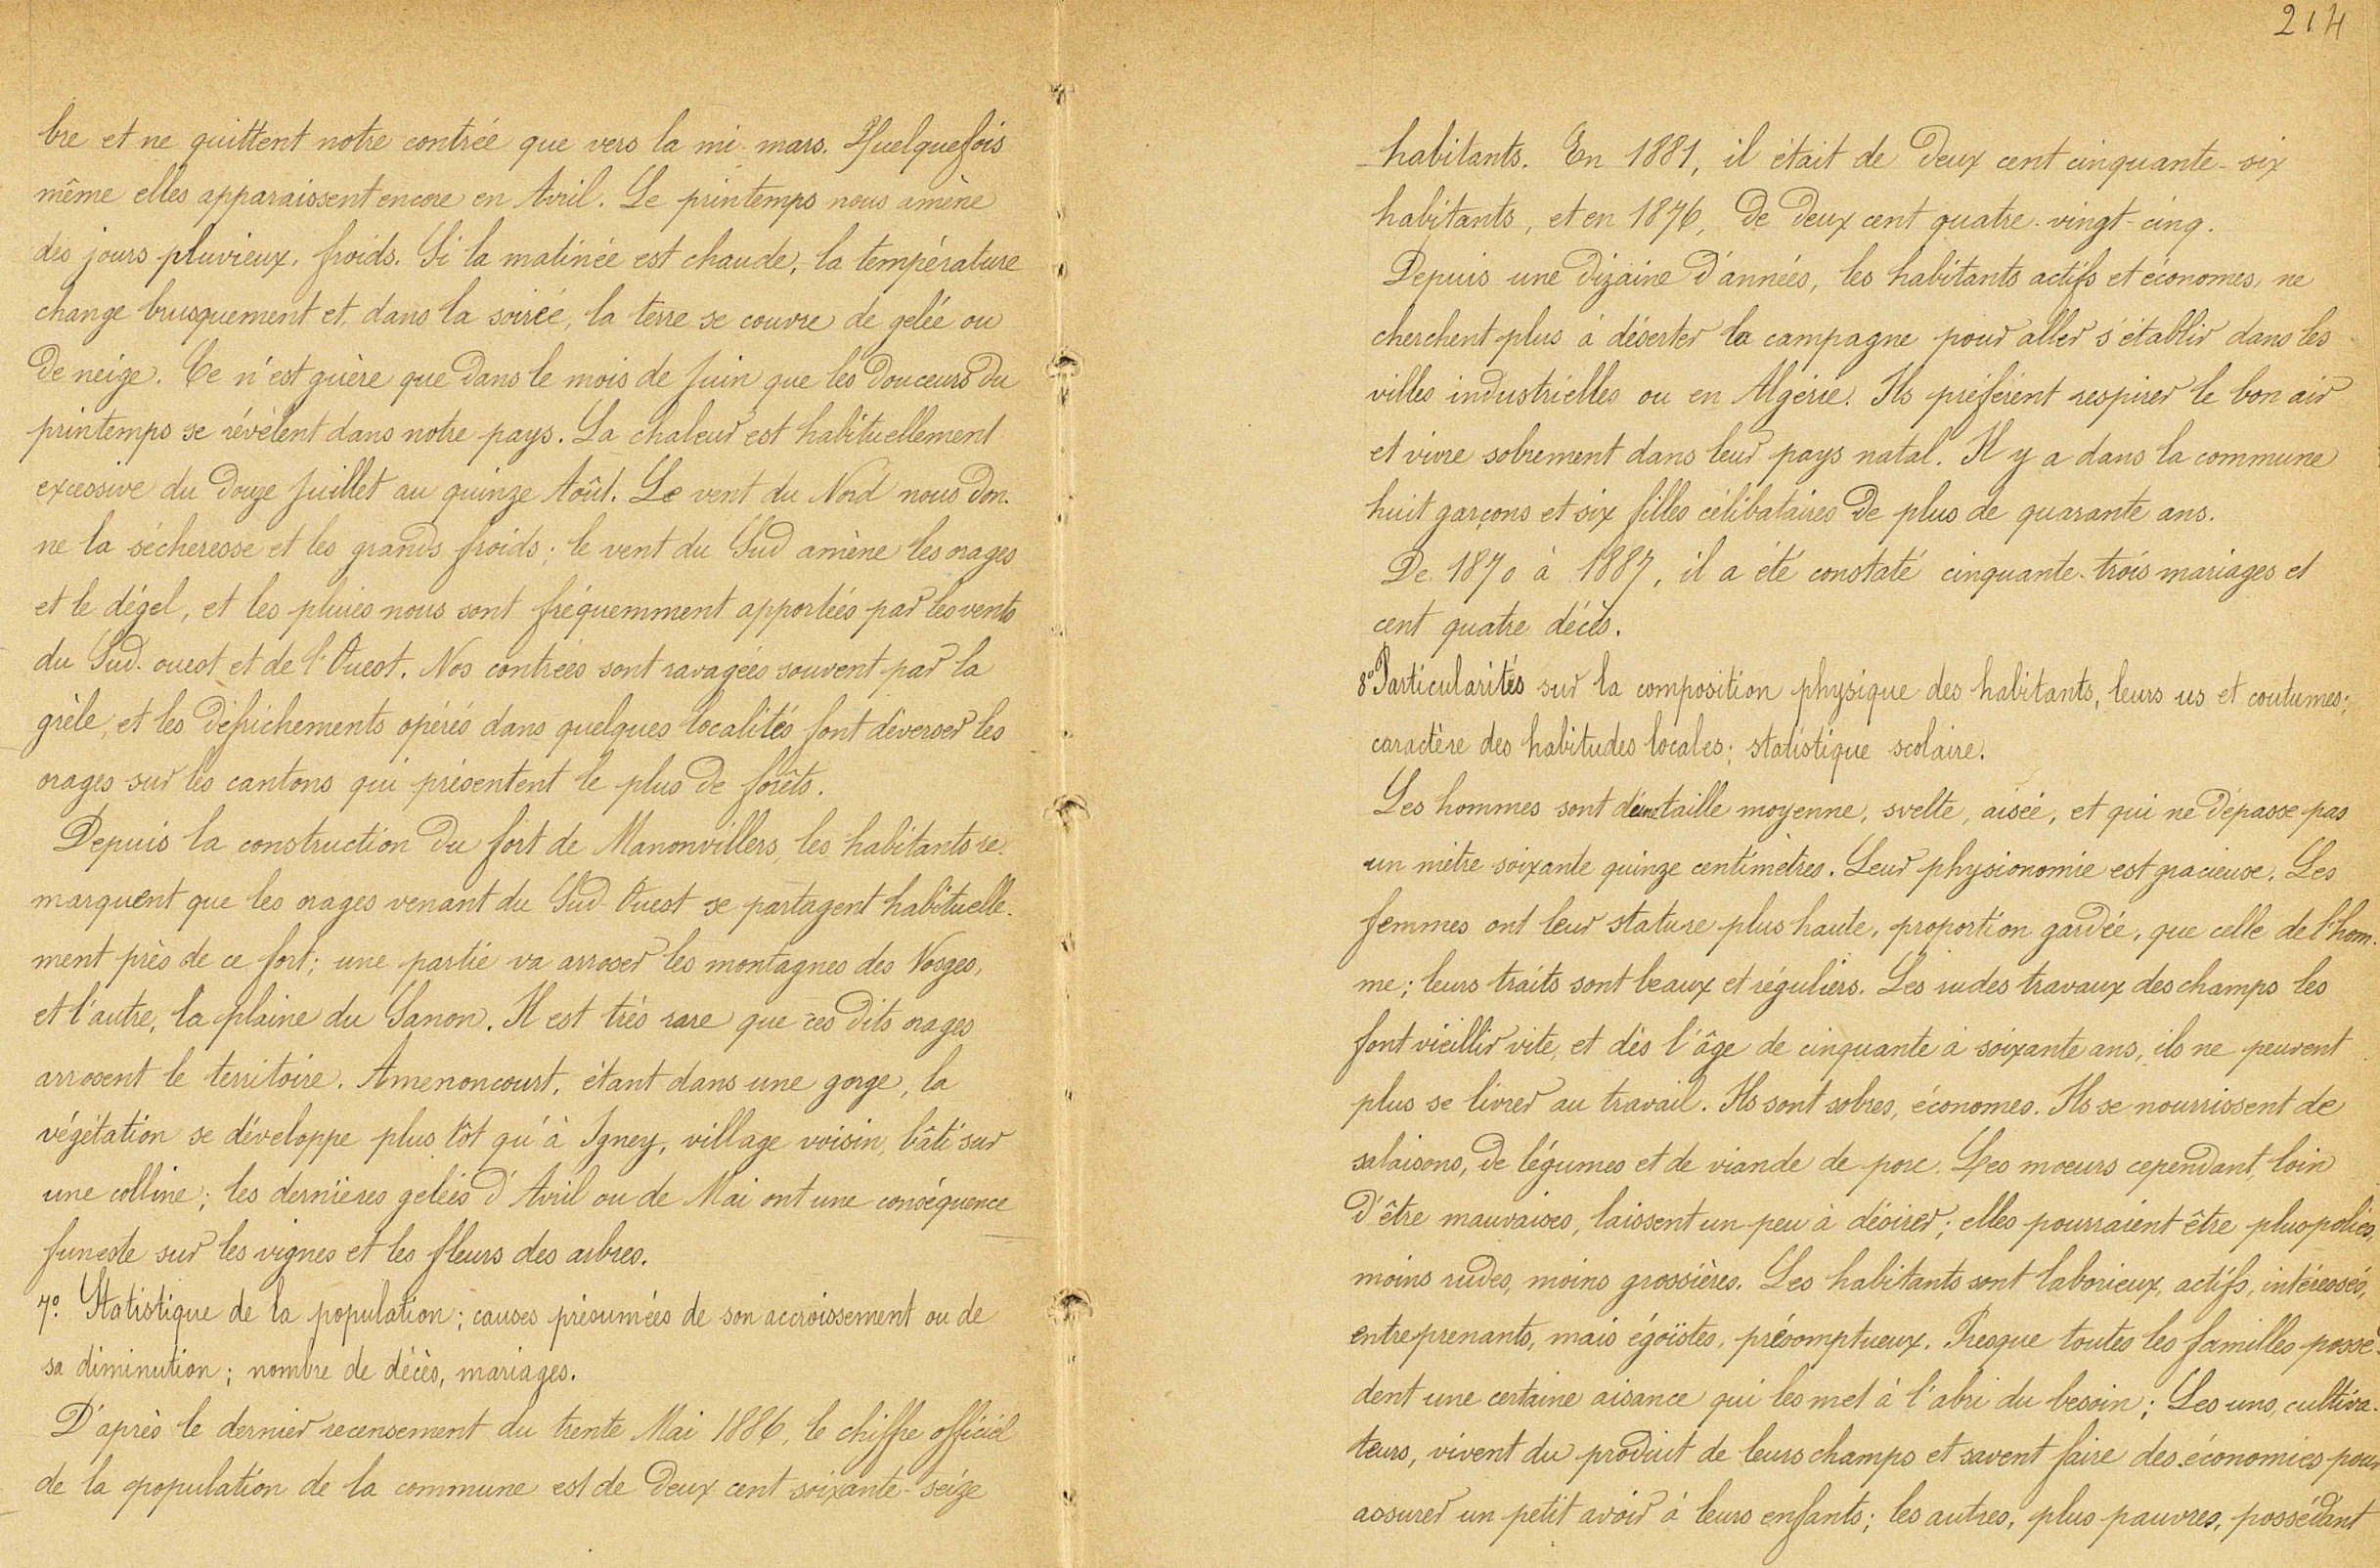 bre et ne quittent notre contrée que vers la mi-mars. Quelquefois
même elles apparaissent encore en Avril. Le printemps nous amène
des jours pluvieux, froids. Si la matinée est chaude, la température
change brusquement et, dans la soirée, la terre se couvre de gelée ou
de neige. Ce n'est guère que dans le mois de Juin que les douceurs du
printemps se révèlent dans notre pays. La chaleur est habituellement
excessive du douze Juillet au quinze Août. Le vent du Nord nous don-
ne la sécheresse et les grands froids; le vent du Sud amène les orages
et le dégel, et les pluies nous sont fréquemment apportées par les vents
du Sud-ouest et de l'Ouest. Nos contrées sont ravagées souvent par la
grèle, et les défrichements opérés dans quelques localités font déverser les
orages sur les cantons qui présentent le plus de forêts.
Depuis la construction du fort de Manonvillers, les habitants re-
marquent que les orages venant du Sud-Ouest se partagent habituelle-
ment près de ce fort; une partie va arroser les montagnes des Vosges,
et l'autre, la plaine du Sanon. Il est très rare que ces dits orages
arrosent le territoire. Amenoncourt, étant dans une gorge, la
végétation se développe plus tôt qu'à Igney, village voisin, bâti sur
une colline; les dernières gelées d'Avril ou de Mai ont une conséquence
funeste sur les vignes et les fleurs des arbres.
7º. Statistique de la population; causes présumées de son accroissement ou de
sa diminution; nombre de décès, mariages.
D'après le dernier recensement du trente Mai 1886, le chiffre officiel
de la population de la commune est de deux cent soixante-seize
214
habitants. En 1881, il était de deux cent cinquante-six
habitants, et en 1876, de deux cent quatre-vingt-cinq.
Depuis une dizaine d'années, les habitants actifs et économes, ne
cherchent plus à déserter la campagne pour aller s'établir dans les
villes industrielles ou en Algérie. Ils préfèrent respirer le bon air
et vivre sobrement dans leur pays natal. Il y a dans la commune
huit garçons et six filles célibataires de plus de quarante ans.
De 1870 à 1887, il a été constaté cinquante-trois mariages et
cent quatre décès.
8º Particularités sur la composition physique des habitants, leurs us et coutumes;
caractère des habitudes locales; statistique scolaire.
Les hommes sont d'une taille moyenne, svelte, aisée, et qui ne dépasse pas
un mètre soixante quinze centimètres. Leur physionomie est gracieuse. Les
femmes ont leur stature plus haute, proportion gardée, que celle de l'hom-
me; leurs traits sont beaux et réguliers. Les rudes travaux des champs les
font vieillir vite, et dès l'âge de cinquante à soixante ans, ils ne peuvent
plus se livrer au travail. Ils sont sobres, économes. Ils se nourrissent de
salaisons, de légumes et de viande de porc. Les moeurs cependant, loin
d'être mauvaises, laissent un peu à désirer; elles pourraient être plus polies,
moins rudes, moins grossières. Les habitants sont laborieux, actifs, intéressés,
entreprenants, mais égoïstes, présomptueux. Presque toutes les familles possè-
dent une certaine aisance qui les met à l'abri du besoin; Les uns, cultiva-
teurs, vivent du produit de leurs champs et savent faire des économies pour
assurer un petit avoir à leurs enfants; les autres, plus pauvres, possédant